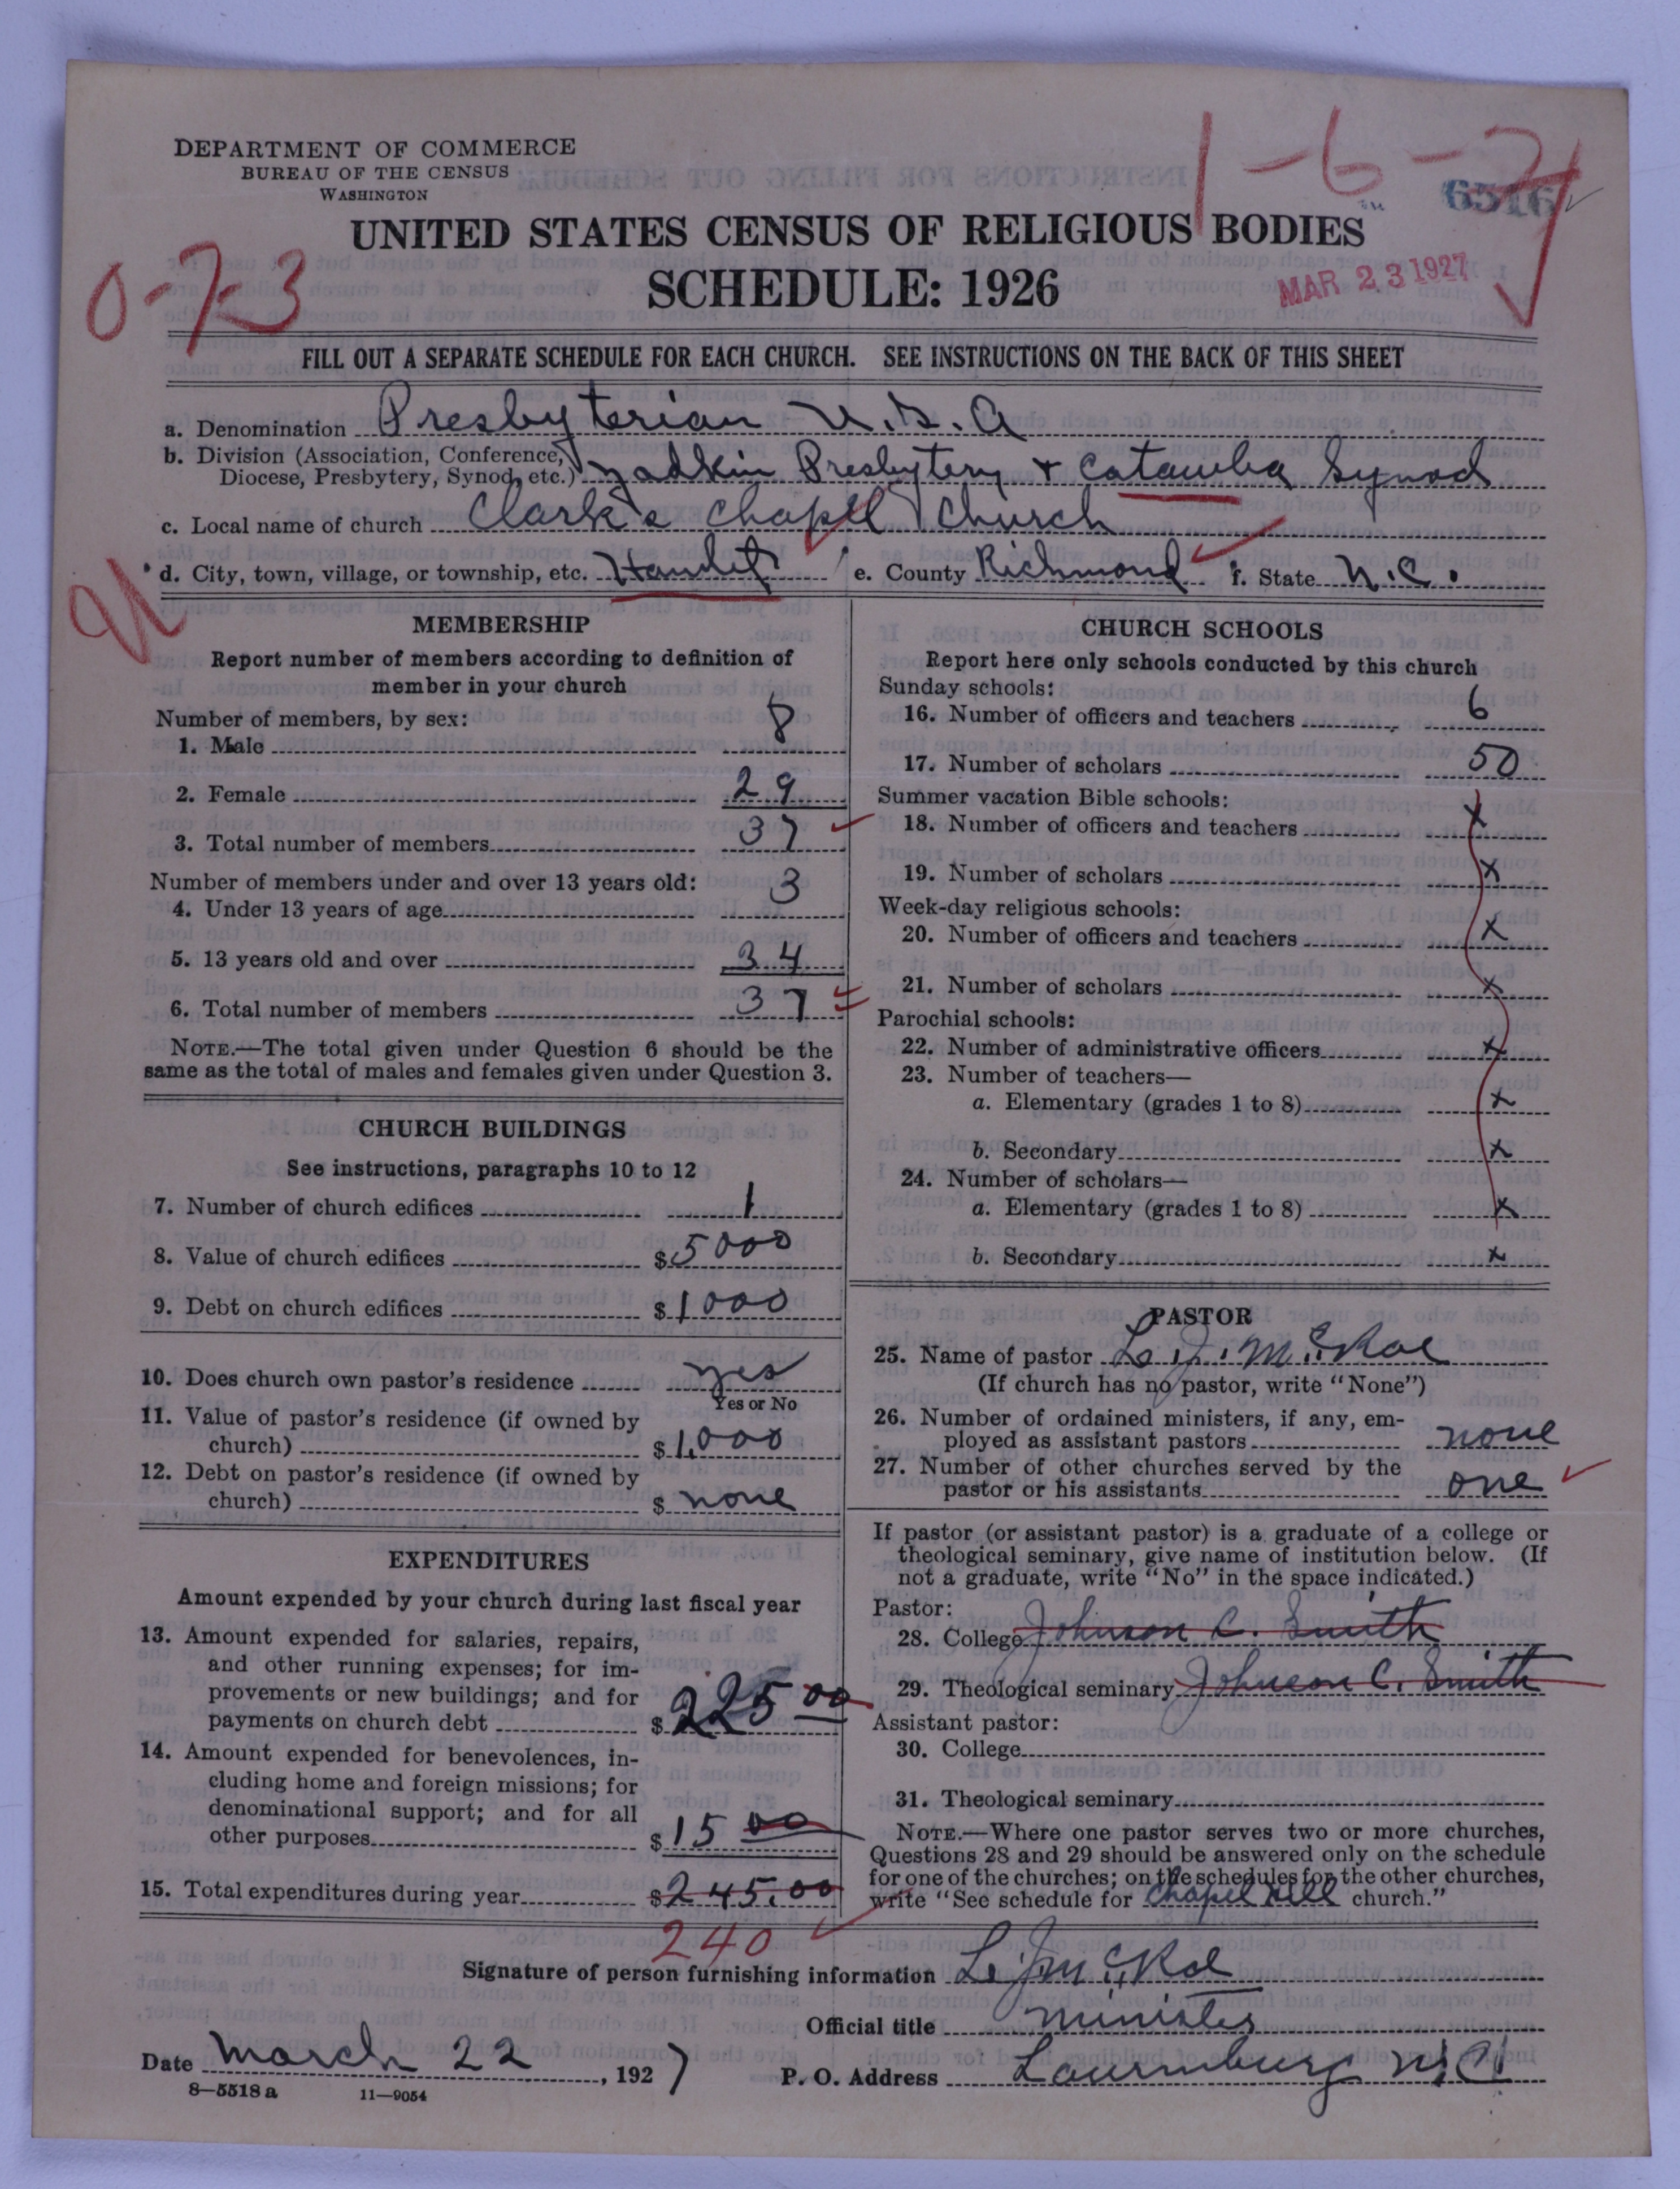 DEPARTMENT OF COMMERCE
BUREAU OF THE CENSUS
WASHINGTON
1-6-
6516
UNITED STATES CENSUS OF RELIGIOUS BODIES
0-7-3
SCHEDULE: 1926
MAR 23 1927
FILL OUT A SEPARATE SCHEDULE FOR EACH CHURCH. SEE INSTRUCTIONS ON THE BACK OF THIS SHEET
a. Denomination Presbyterian U.S.A
b. Division (Association, Conference,
Diocese, Presbytery, Synod, etc.) Yadkin Presbytery + Catawba Synod
c. Local name of church Clark's Chapel Church
d. City, town, village, or township, etc. Hamlet e. County Richmond f. State N.C.
MEMBERSHIP
Report number of members according to definition of
member in your church
Number of members, by sex:
1. Male 8
2. Female 29
3. Total number of members 37
Number of members under and over 13 years old:
4. Under 13 years of age 3
5. 13 years old and over 34
6. Total number of members 37
NOTE.—The total given under Question 6 should be the
same as the total of males and females given under Question 3.
CHURCH BUILDINGS
See instructions, paragraphs 10 to 12
7. Number of church edifices 1
8. Value of church edifices $5000
9. Debt on church edifices $1000
10. Does church own pastor's residence yes
Yes or No
11. Value of pastor's residence (if owned by
church) $1,000
12. Debt on pastor's residence (if owned by
church) $ none
EXPENDITURES
Amount expended by your church during last fiscal year
13. Amount expended for salaries, repairs,
and other running expenses; for im-
provements or new buildings; and for
payments on church debt $225 00
14. Amount expended for benevolences, in-
cluding home and foreign missions; for
denominational support; and for all
other purposes $15 00
15. Total expenditures during year $245.00
240
CHURCH SCHOOLS
Report here only schools conducted by this church
Sunday schools:
16. Number of officers and teachers 6
17. Number of scholars 50
Summer vacation Bible schools:
18. Number of officers and teachers x
19. Number of scholars x
Week-day religious schools:
20. Number of officers and teachers x
21. Number of scholars x
Parochial schools:
22. Number of administrative officers x
23. Number of teachers—
a. Elementary (grades 1 to 8) x
b. Secondary x
24. Number of scholars—
a. Elementary (grades 1 to 8) x
b. Secondary x
PASTOR
25. Name of pastor L. J. McRae
(If church has no pastor, write "None")
26. Number of ordained ministers, if any, em-
ployed as assistant pastors none
27. Number of other churches served by the
pastor or his assistants one
If pastor (or assistant pastor) is a graduate of a college or
theological seminary, give name of institution below. (If
not a graduate, write "No" in the space indicated.)
Pastor:
28. College Johnson C. Smith
29. Theological seminary Johnson C. Smith
Assistant pastor:
30. College
31. Theological seminary
NOTE.—Where one pastor serves two or more churches,
Questions 28 and 29 should be answered only on the schedule
for one of the churches; on the schedules for the other churches,
write "See schedule for Chapel Hill church."
Signature of person furnishing information L. J. McRae
Official title Minister
Date March 22, 1927 P. O. Address Laurinburg N.C.
8—5518a 11—9054